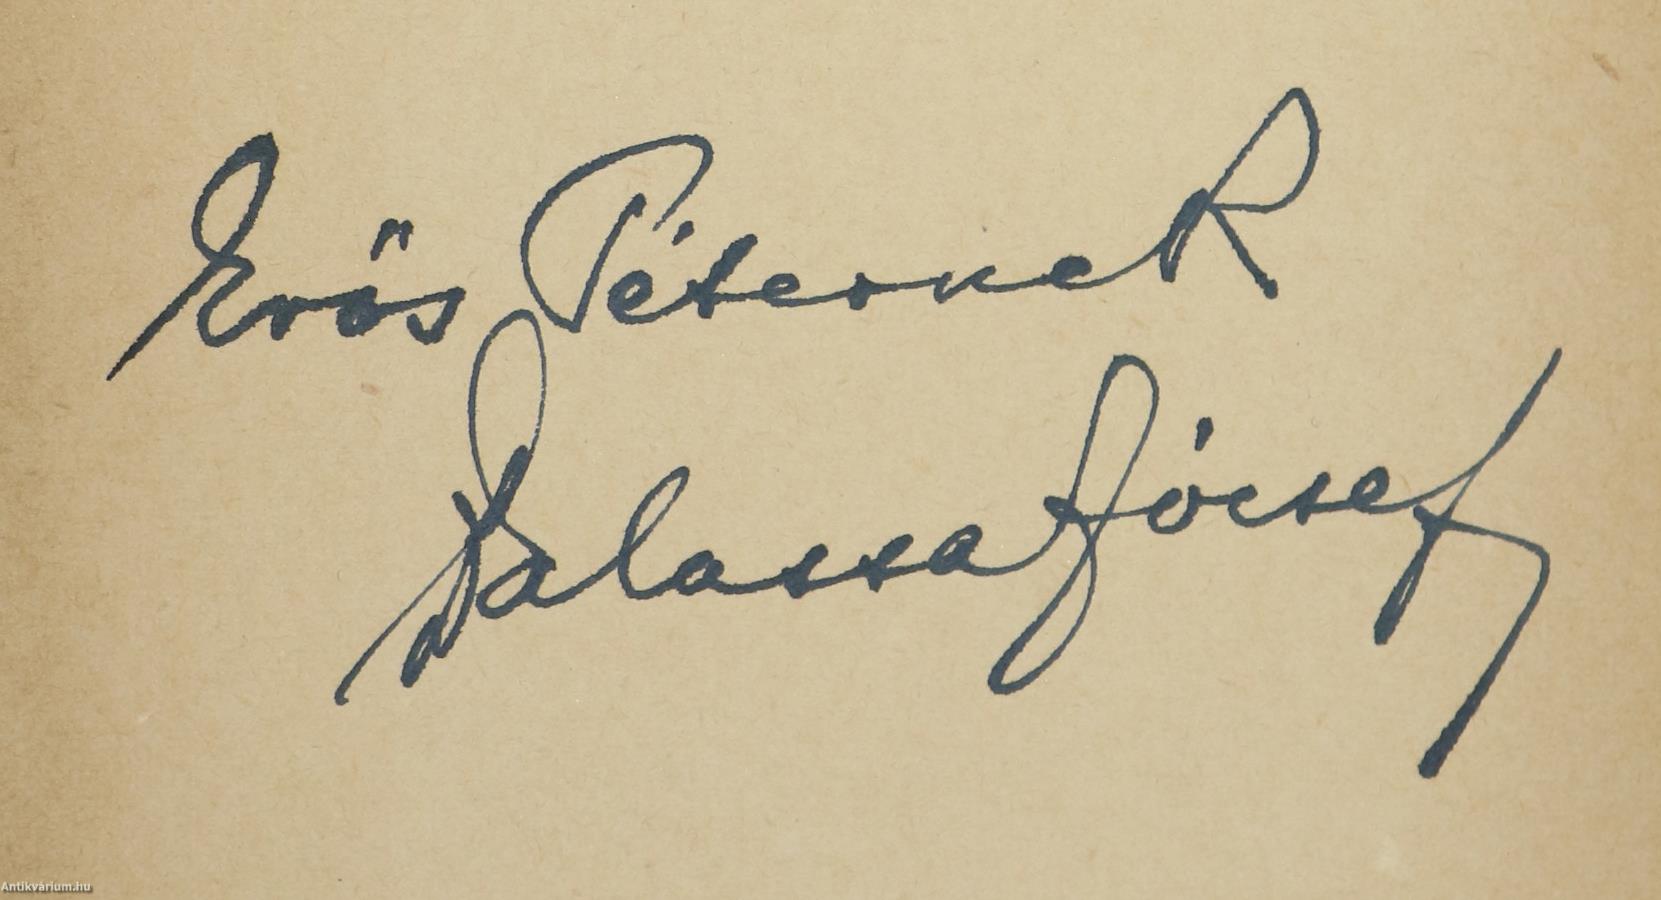 Erős Péternek
Balassa József
Antikvárium.hu